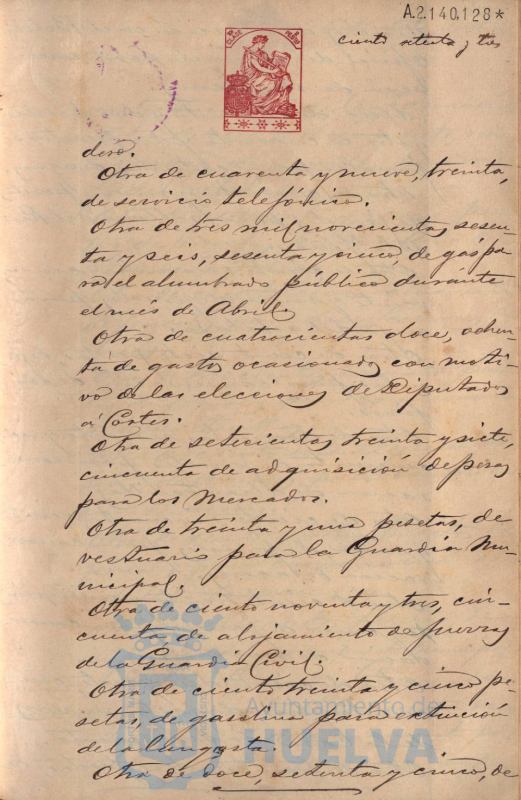 A.2.140,128*
ciento setenta y tres
dero.
Otra de cuarenta y nueve, treinta,
de servicio telefónico.
Otra de tres mil novecientas sesen-
ta y seis, sesenta y cinco, de gas pa-
ra el alumbrado público durante
el mes de Abril.
Otra de cuatrocientas doce, ochen-
ta de gastos ocasionados con moti-
vo de las elecciones de Diputados
á Cortes.
Otra de setecientas treinta y siete,
cincuenta de adquisición de pesas
para los Mercados.
Otra de treinta y una pesetas, de
vestuario para la Guardia Mu-
nicipal.
Otra de ciento noventa y tres, cin-
cuenta, de alojamiento de fuerzas
de la Guardia Civil.
Otra de ciento treinta y cinco pe-
setas, de gasolina para extinción
de la langosta.
Otra de doce, setenta y cinco, de
Ayuntamiento de
HUELVA